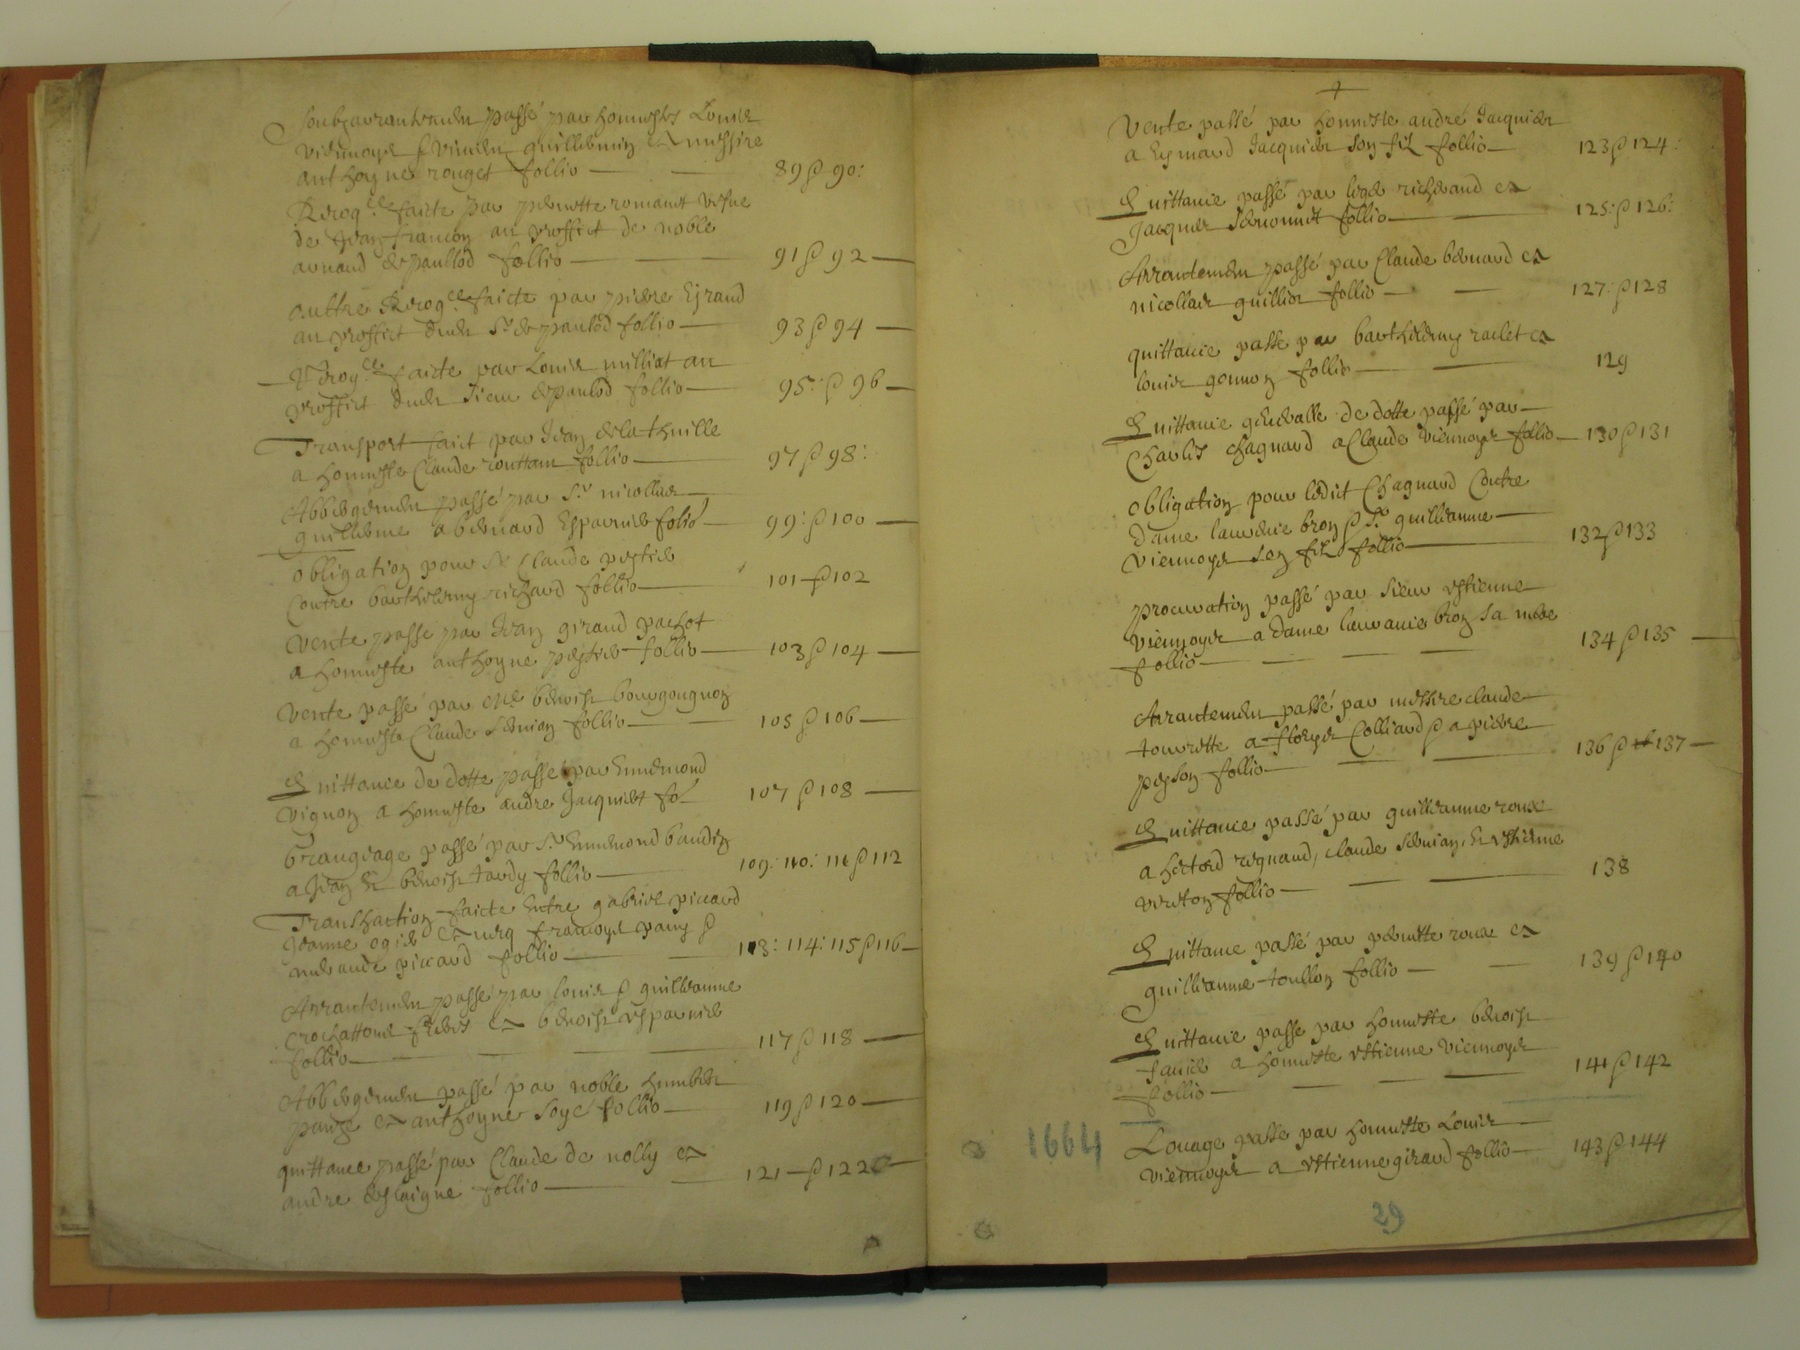 Soubzarrantemen passé par honnestes Louis
Viennoys & Vincen guillermin et messire
anthoyne rouget follio — 89 & 90:
Recog.ce faicte par pernette romanet vefve
de Jean francon au proffict de noble
arnaud de paullod follio — 91 & 92 —
aultre Recog.ce faicte par pierre Eyraud
au proffict dudit Sr de paulod follio — 93 & 94 —
Recog.ce faicte par Louis milliat au
proffict dudit Sieur de paulod follio — 95: & 96 —
Transport faict par Jean de la thuille
a honneste Claude follio — 97 & 98:
Abbergemen passé par Sr nicollas
guillerme a bernard Esparnier folio — 99: & 100 —
obligation pour Sr Claude
Contre barthelemy richard follio — 101 — & 102
Vente passe par Jean giraud pachot
a honneste anthoyne follio — 103 & 104 —
Vente passé par me benoist bourgougnon
a honneste Claude follio — 105 & 106 —
Quittance de dotte passée par Ennemond
vignon a honneste andre Jacquier fo — 107 & 108 —
Grangeage passé par Sr Ennemond baudin
a Jean Et benoist tardy follio — 109: 110: 111 & 112
Transhaction faicte Entre gabriel piccard
Jeanne ogier Et francoys &
piccard follio — 113: 114: 115 & 116 —
Arrantemen passé par louis & guillaume
freres Et benoist Esparnier
follio — 117 & 118 —
Abbergemen passé par noble humbert
Et anthoyne follio — 119 & 120 —
quittance passé par Claude de nolly Et
andre follio — 121 — & 122 —
Vente passé par honneste andré Jacquier
a Eymard Jacquier son filz follio — 123 & 124:
Quittance passé par richard Et
Jacques follio — 125: & 126:
Arrantemen passé par Claude bernard Et
nicollas guillier follio — 127: & 128
quittance passe par barthelemy raclet Et
louis gonnon follio — 129
Quittance generalle de dotte passé par
Charles Chagnard a Claude Viennoys follio — 130 & 131
obligation pour ledict Chagnard Contre
Dame laurence bron & Sr guillaume
Viennoys son filz follio — 132 & 133
procuration passé par Sieur Estienne
Viennoys a Dame laurance bron sa mere
follio — 134 & 135 —
Arrantemen passé par messire claude
tourette a Colliard & a pierre
follio — 136 & 137 —
Quittance passé par guillaume roux
a hector regnaud, claude Et Estienne
follio — 138
Quittance passé par pernette roux Et
guillaume toullon follio — 139 & 140
Quittance passe par honneste benoist
a honneste Estienne Viennoys
follio — 141 & 142
1664
Louage passe par honneste Louis
Viennoys a Estienne girard follio — 143 & 144
29